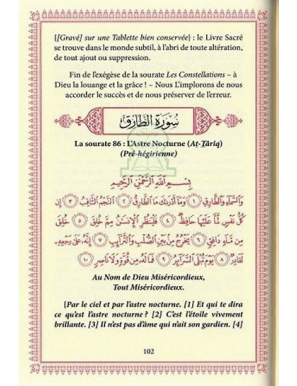 [[Gravé] sur une Tablette bien conservée] : le Livre Sacré
se trouve dans le monde subtil, à l'abri de toute altération,
de tout ajout ou suppression.
Fin de l'exégèse de la sourate Les Constellations – à
Dieu la louange et la grâce ! – Nous L'implorons de nous
accorder le succès et de nous préserver de l'erreur.
سورة الطارق
La sourate 86 : L'Astre Nocturne (Aṭ-Ṭâriq)
(Pré-hégirienne)
بسم الله الرحمن الرحيم
والسماء والطارق ١ وما أدراك ما الطارق ٢ النجم الثاقب ٣ إن
كل نفس لما عليها حافظ ٤ فلينظر الإنسان مم خلق ٥ خلق
من ماء دافق ٦ يخرج من بين الصلب والترائب ٧ إنه على رجعه
لقادر ٨ يوم تبلى السرائر ٩ فما له من قوة ولا ناصر ١٠
Au Nom de Dieu Miséricordieux,
Tout Miséricordieux.
[Par le ciel et par l'astre nocturne. [1] Et qui te dira
ce qu'est l'astre nocturne ? [2] C'est l'étoile vivement
brillante. [3] Il n'est pas d'âme qui n'ait son gardien. [4]
102